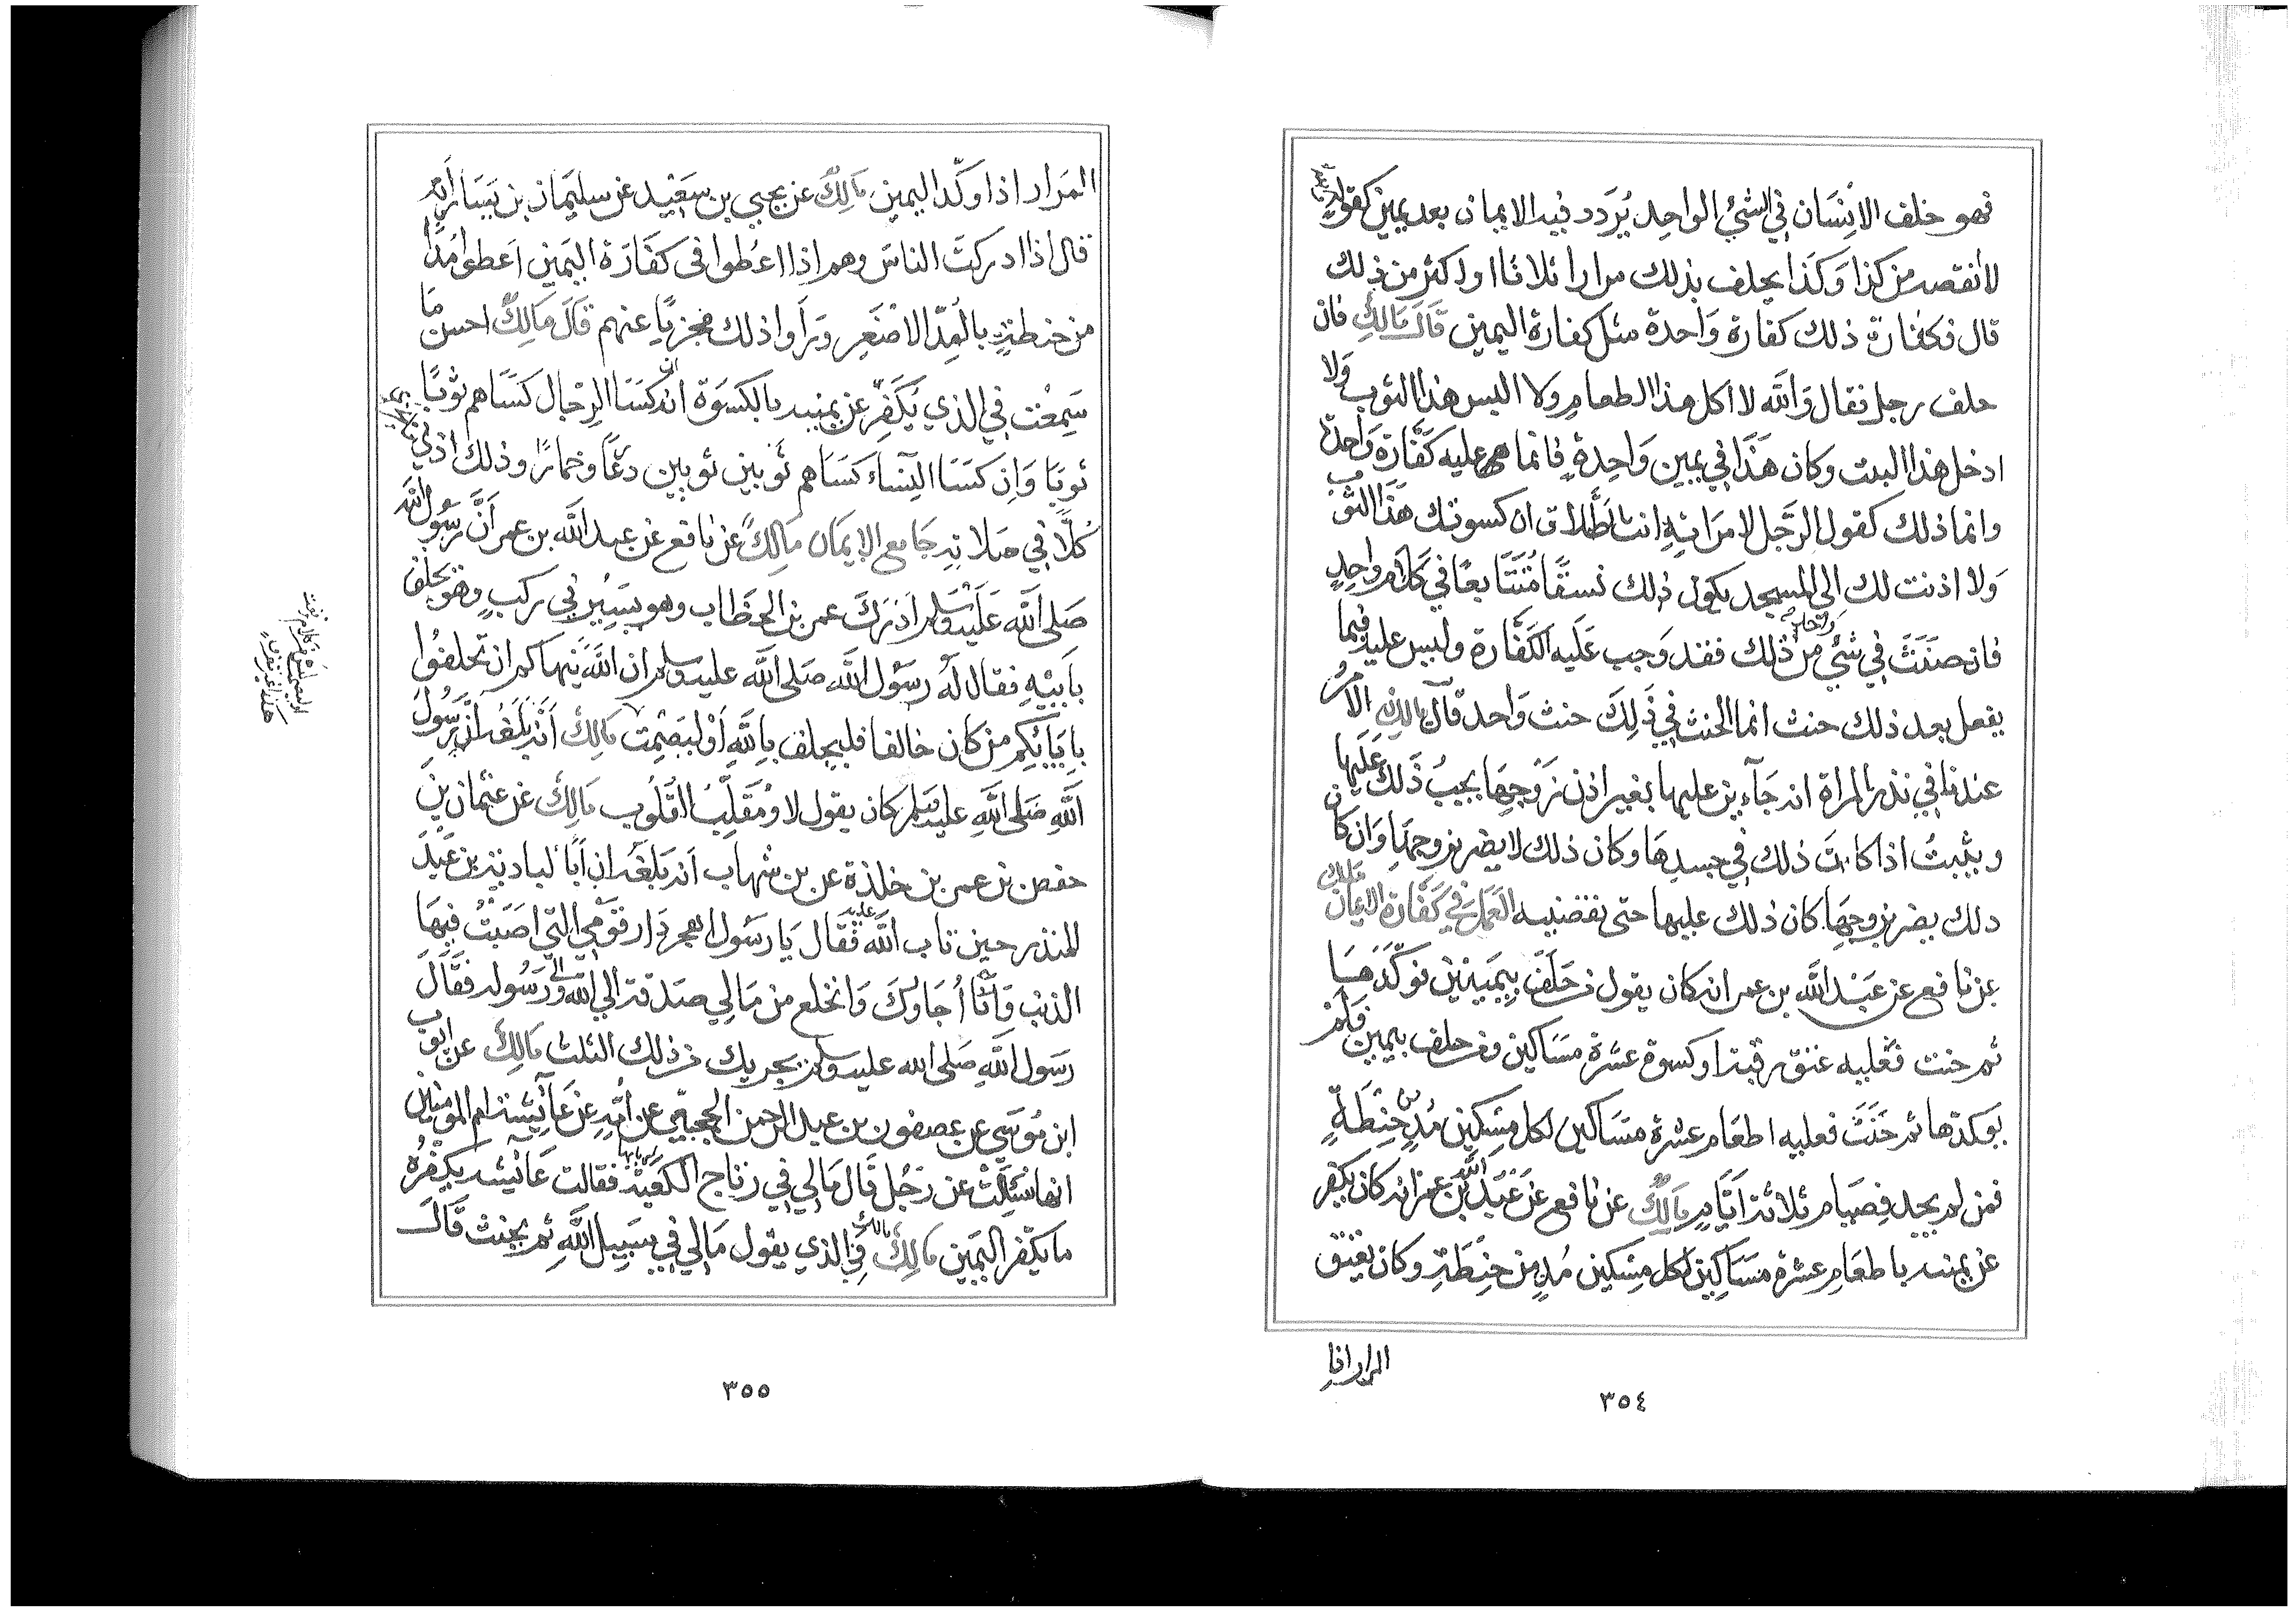 فهو حلف الانسان في الشيء الواحد يردد فيه الايمان بعد يمين كقوله
لا انقصه من كذا وكذا يحلف بذلك مرارا ثلاثا او اكثر من ذلك
قال فكفارة ذلك كفارة واحدة مثل كفارة اليمين قال مالك فان
حلف رجل فقال والله لا اكل هذا الطعام ولا البس هذا الثوب ولا
ادخل هذا البيت وكان هذا في يمين واحدة فانما هي عليه كفارة واحدة
وانما ذلك كقول الرجل لامراته انت الطلاق ان كسوتك هذا الثوب
ولا اذنت لك الى المسجد يكون ذلك نسقا متتابعا في كلام واحد
فان حنث في شيء واحد من ذلك فقد وجب عليه الكفارة وليس عليه فيما
يفعل بعد ذلك حنث انما الحنث في ذلك حنث واحد قال مالك الامر
عندنا في نذر المراة انه جآيز عليها بغير اذن زوجها يجب ذلك عليها
ويثبت اذا كانت ذلك في جسدها وكان ذلك لا يضر بزوجها وان كان
ذلك يضر بزوجها كان ذلك عليها حتى تقضيه العمل في كفارة الايمان مالك
عن نافع عن عبد الله بن عمر انه كان يقول من حلف بيمين توكدها
ثم حنث فعليه عتق رقبة او كسوة عشرة مساكين ومن حلف بيمين فلم
يوكدها ثم حنث فعليه اطعام عشرة مساكين لكل مسكين مد من حنطة
فمن لم يجد فصيام ثلاثة ايام مالك عن نافع عن عبد الله بن عمر انه كان يكفر
عن يمينه باطعام عشرة مساكين لكل مسكين مد من حنطة وكان يعتق
المرار اذا
٣٥٤
المرار اذا وكد اليمين مالك عن يحيى بن سعيد عن سليمان بن يسار انه
قال اذا ادركت الناس وهم اذا اعطوا في كفارة اليمين اعطوا مدا
من حنطة بالمد الاصغر وراوا ذلك مجزيا عنهم قال مالك احسن ما
سمعت في الذي يكفر عن يمينه بالكسوة انه ان كسا الرجال كساهم ثوبا
ثوبا وان كسا النساء كساهم ثوبين ثوبين درعا وخمارا وذلك ادنى
كلا في صلاته جامع الايمان مالك عن نافع عن عبد الله بن عمر ان رسول الله
صلى الله عليه وسلم ادرك عمر بن الخطاب وهو يسير في ركب وهو يحلف
بابيه فقال له رسول الله صلى الله عليه وسلم ان الله ينهاكم ان تحلفوا
بابايكم من كان حالفا فليحلف بالله او ليصمت مالك انه بلغه ان رسول
الله صلى الله عليه وسلم كان يقول لا ومقلب القلوب مالك عن عثمان بن
حفص بن عمر بن خلدة عن بن شهاب انه بلغه ان ابا لبابة بن عبد
المنذر حين تاب الله عليه فقال يا رسول اهجر دار قومي التي اصبت فيها
الذنب وانا اجاورك وانخلع من مالي صدقة الى الله والى رسوله فقال
رسول الله صلى الله عليه وسلم يجزيك من ذلك الثلث مالك عن ايوب
ابن موسى عن عصفون بن عبد الرحمن الحجبي عن امه عن عآئشة ام المومنين
انها سئلت عن رجل قال مالي في رتاج الكعبة فقالت عآئشة يكفره
ما يكفر اليمين مالك في الذي يقول مالي في سبيل الله ثم يحنث قال
٣٥٥